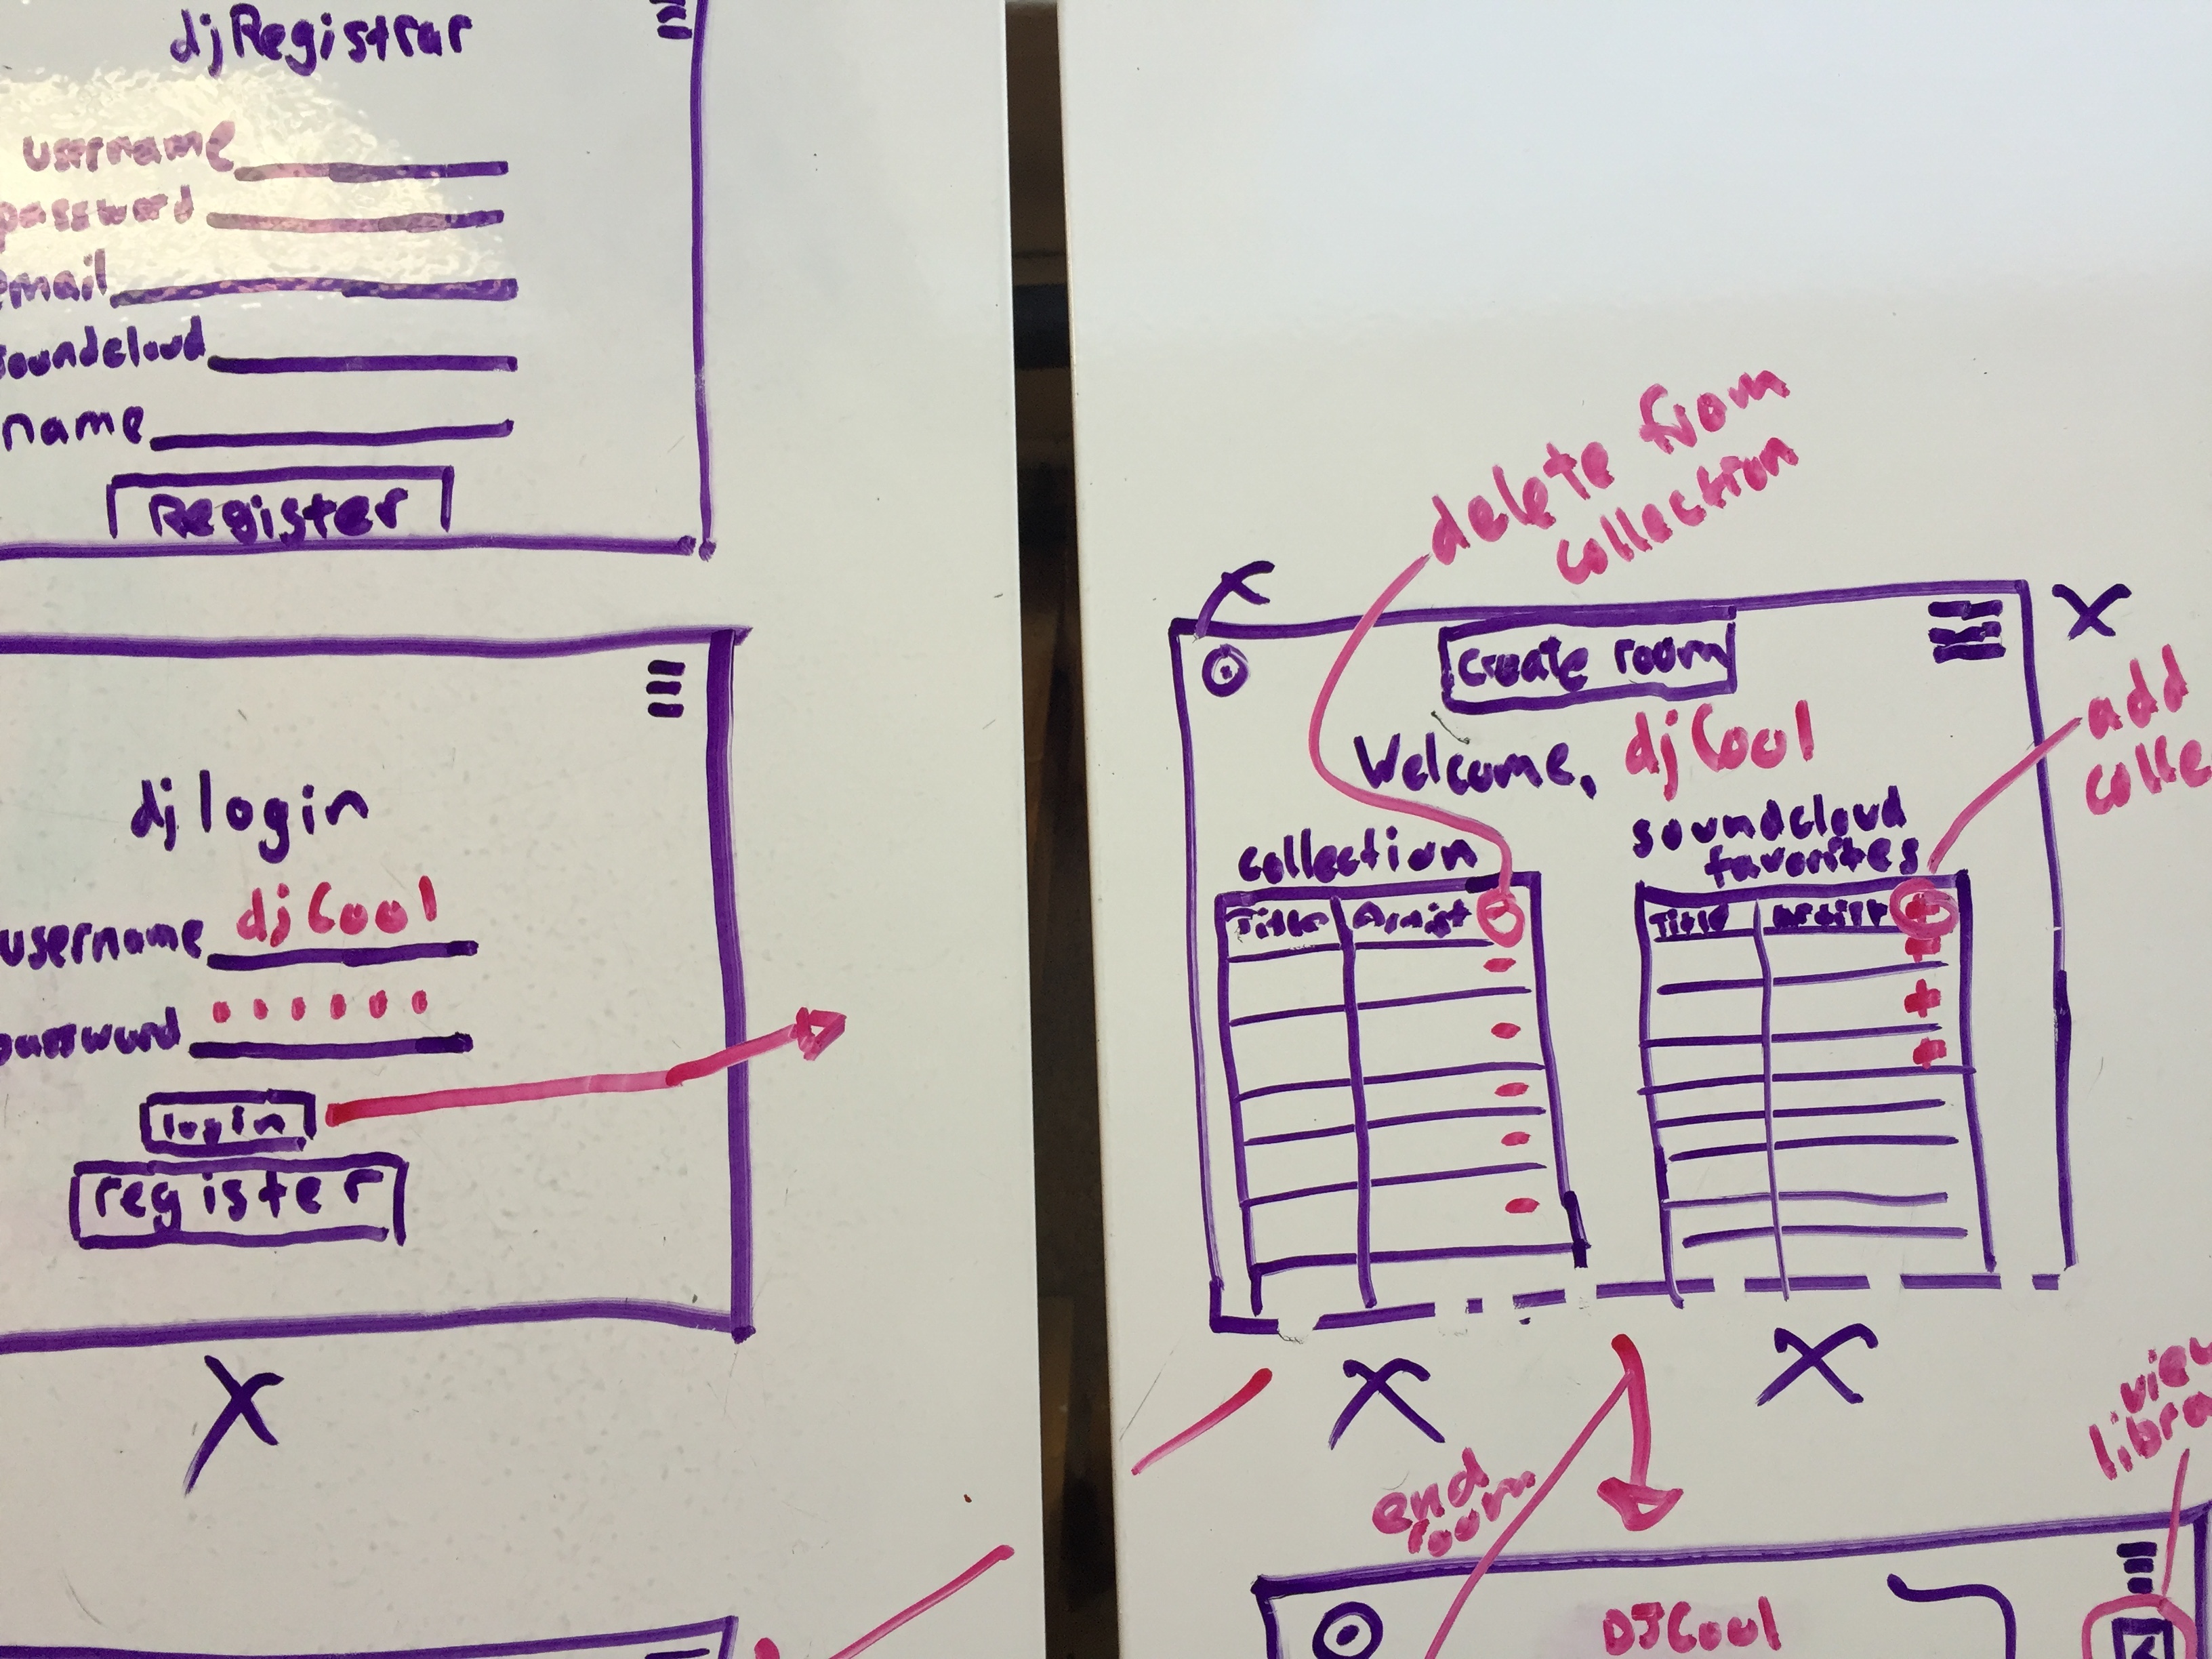 djRegistrar
username
password
email
soundcloud
name
Register
dj login
username djCool
password
login
register
delete from
collection
create room
Welcome, djCool
add
colle
collection
Title Artist
soundcloud
favorites
Title Artist
end
room
view
libra
DJCool